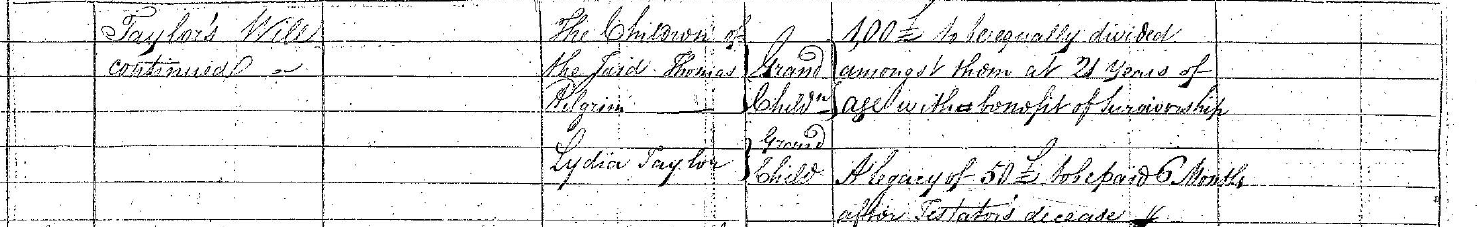 Taylor's Will The Children of 100£ to be equally divided
continued the said Thomas Grand amongst them at 21 Years of
Pilgrim Childn age with benefit of Survivorship
Grand
Lydia Taylor Child A legacy of 50£ to be paid 6 Months
after Testator's decease